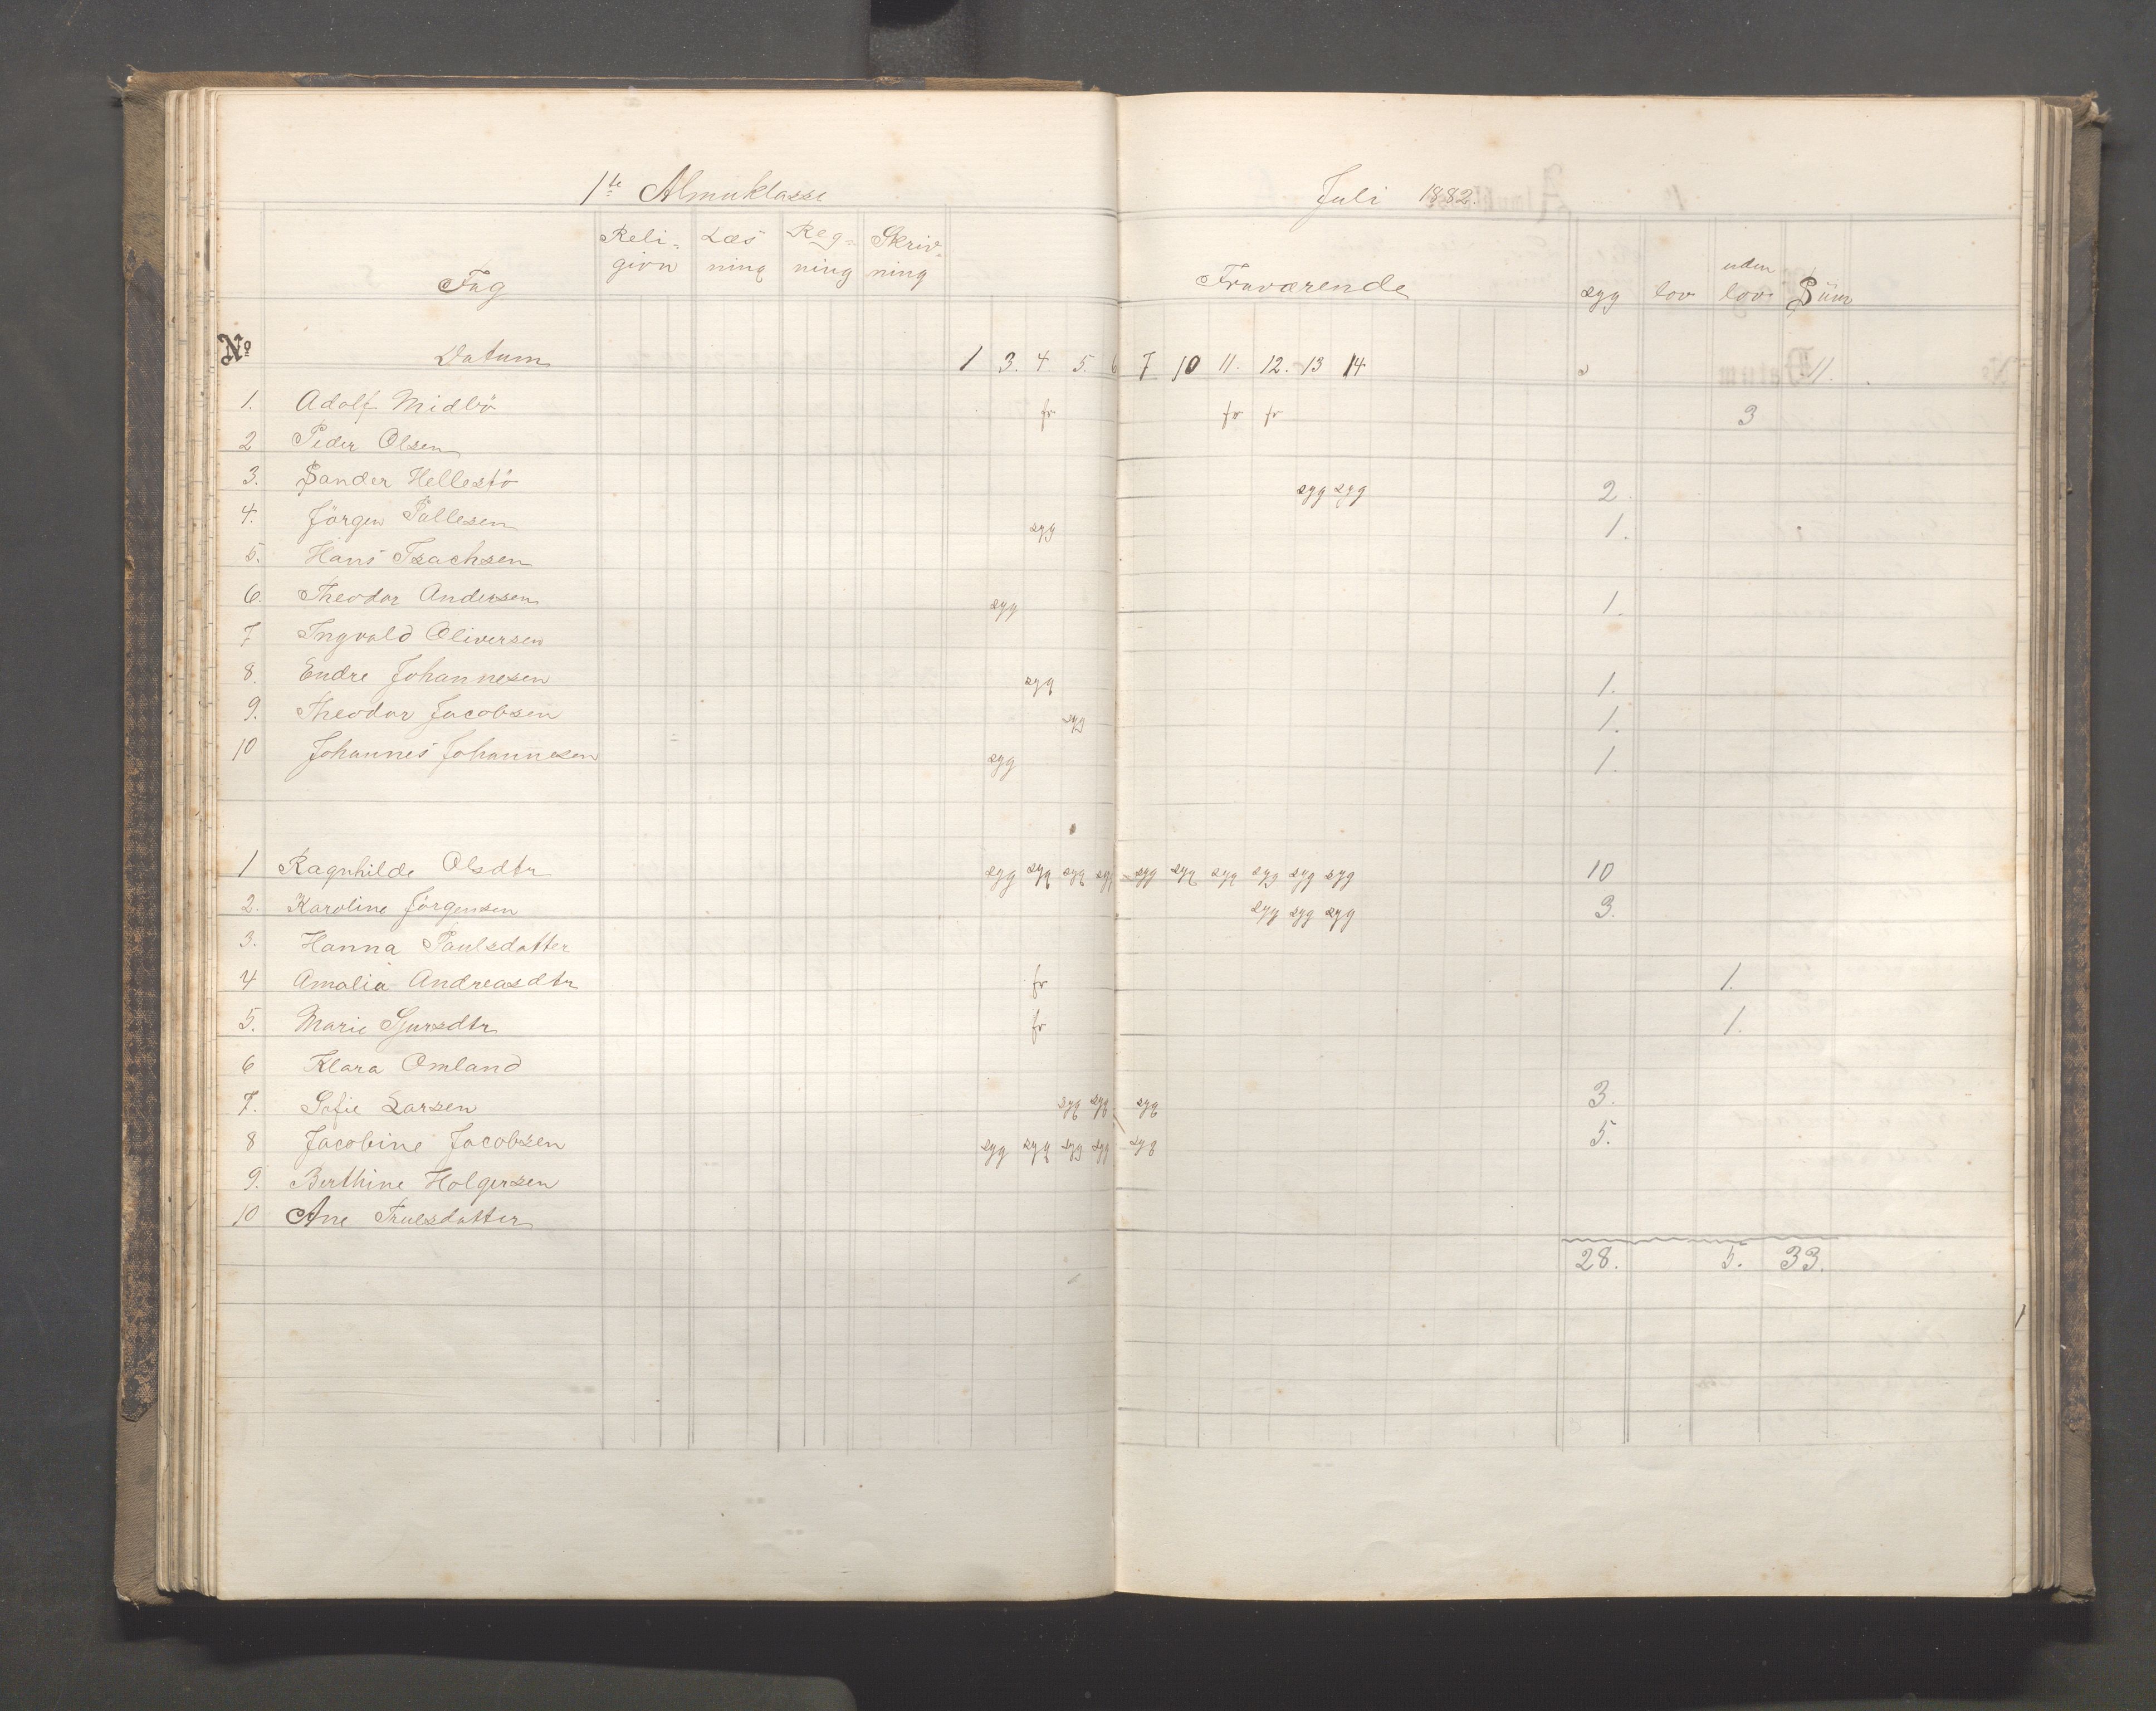 1ste Almuklasse
Juli 1882.
Fag Reli-gion Læsning Reg-ning Skriv-ning Fraværende syg lov uden lov Sum
No Datum 1 3. 4 5. 6 7 10 11. 12. 13 14 11.
1. Adolf Midbö fr fr fr 3
2 Peder Olsen
3. Sander Hellestö syg syg 2.
4. Jörgen Pallesen syg 1.
5. Hans Isachsen
6. Theodor Andersen syg 1.
7 Ingvald Oliversen
8. Endre Johannesen syg 1.
9. Theodor Jacobsen syg 1.
10 Johannes Johannesen syg 1.
1 Ragnhilde Olsdtr syg syg syg syg syg syg syg syg syg syg 10
2. Karoline Jörgensen syg syg syg 3.
3. Hanna Paulsdatter
4 Amalia Andreasdtr fr 1.
5. Marie Sjursdtr fr 1.
6 Klara Omland
7. Sofie Larsen syg syg syg 3.
8 Jacobine Jacobsen syg syg syg syg syg 5.
9. Berthine Holgersen
10 Ane Truelsdatter
28. 5. 33.